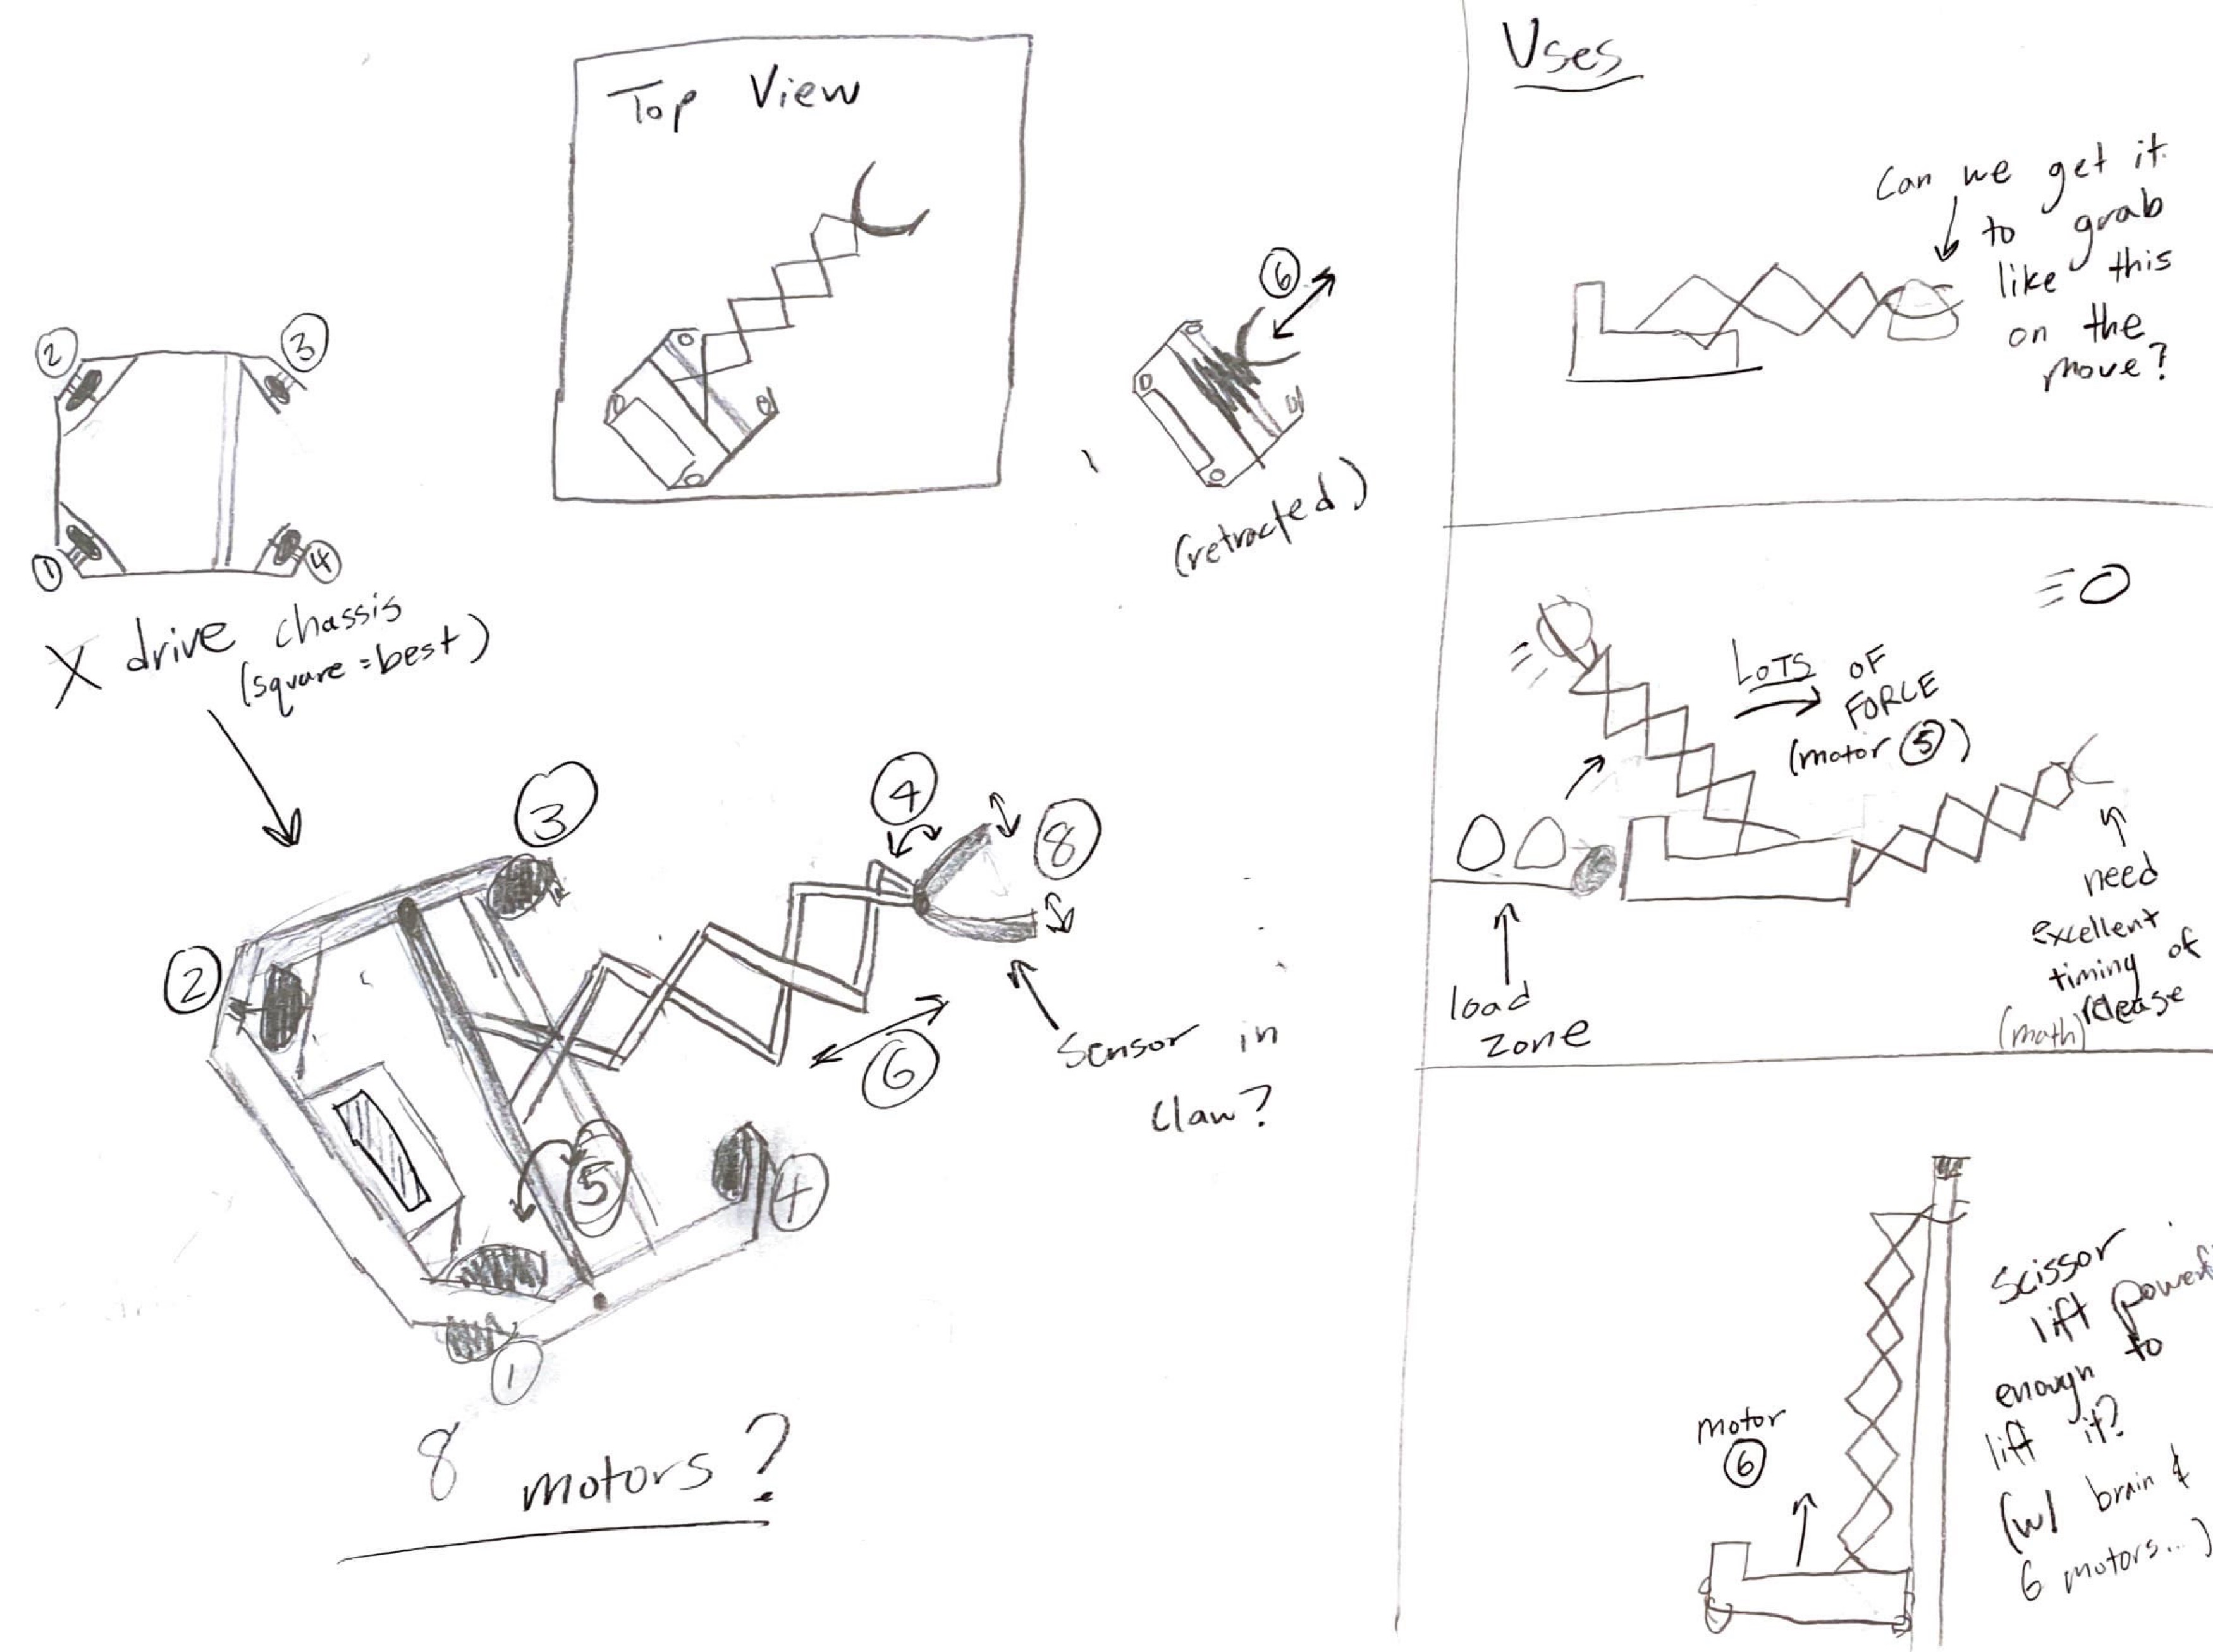 Top View
⑥
(retracted)
②
③
①
④
X drive chassis
(square=best)
③
④
⑧
②
⑥
Sensor in
claw?
⑤
④
①
8 motors?
Uses
Can we get it
to grab
like this
on the
move?
LOTS OF
FORCE
(motor ⑤)
need
excellent
timing of
release
(math)
load
zone
Scissor
lift
enough to
lift it?
(w/ brain &
6 motors...)
motor
⑥